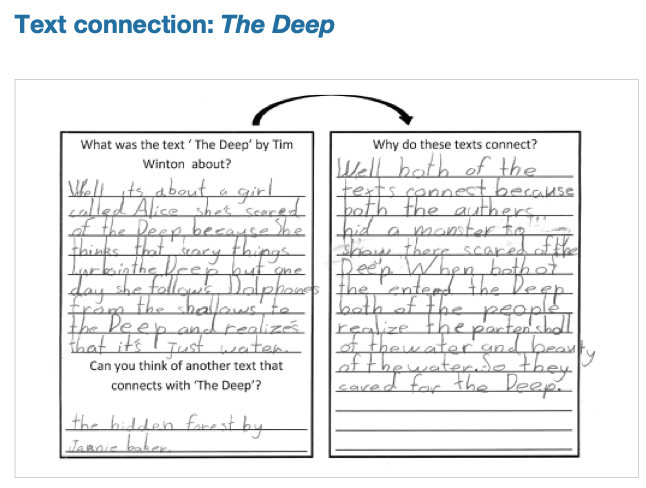 Text connection: The Deep
What was the text ‘ The Deep’ by Tim
Winton about?
Well its about a girl
called Alice she's scared
of the Deep because she
thinks that scary things
lurksinthe Deep but one
day she follows Dolphones
from the shallows to
the Deep and realizes
that it's Just water.
Can you think of another text that
connects with ‘The Deep’?
the hidden forest by
Jeannie baker.
Why do these texts connect?
Well both of the
texts connect because
both the authers
hid a monster to
show there scared of the
Deep. When both of
the enteed the Deep
both of the people
realize the
of the water and beauty
of the water. So they
cared for the Deep.